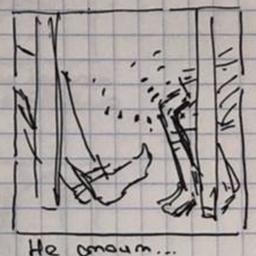 Не стоит...